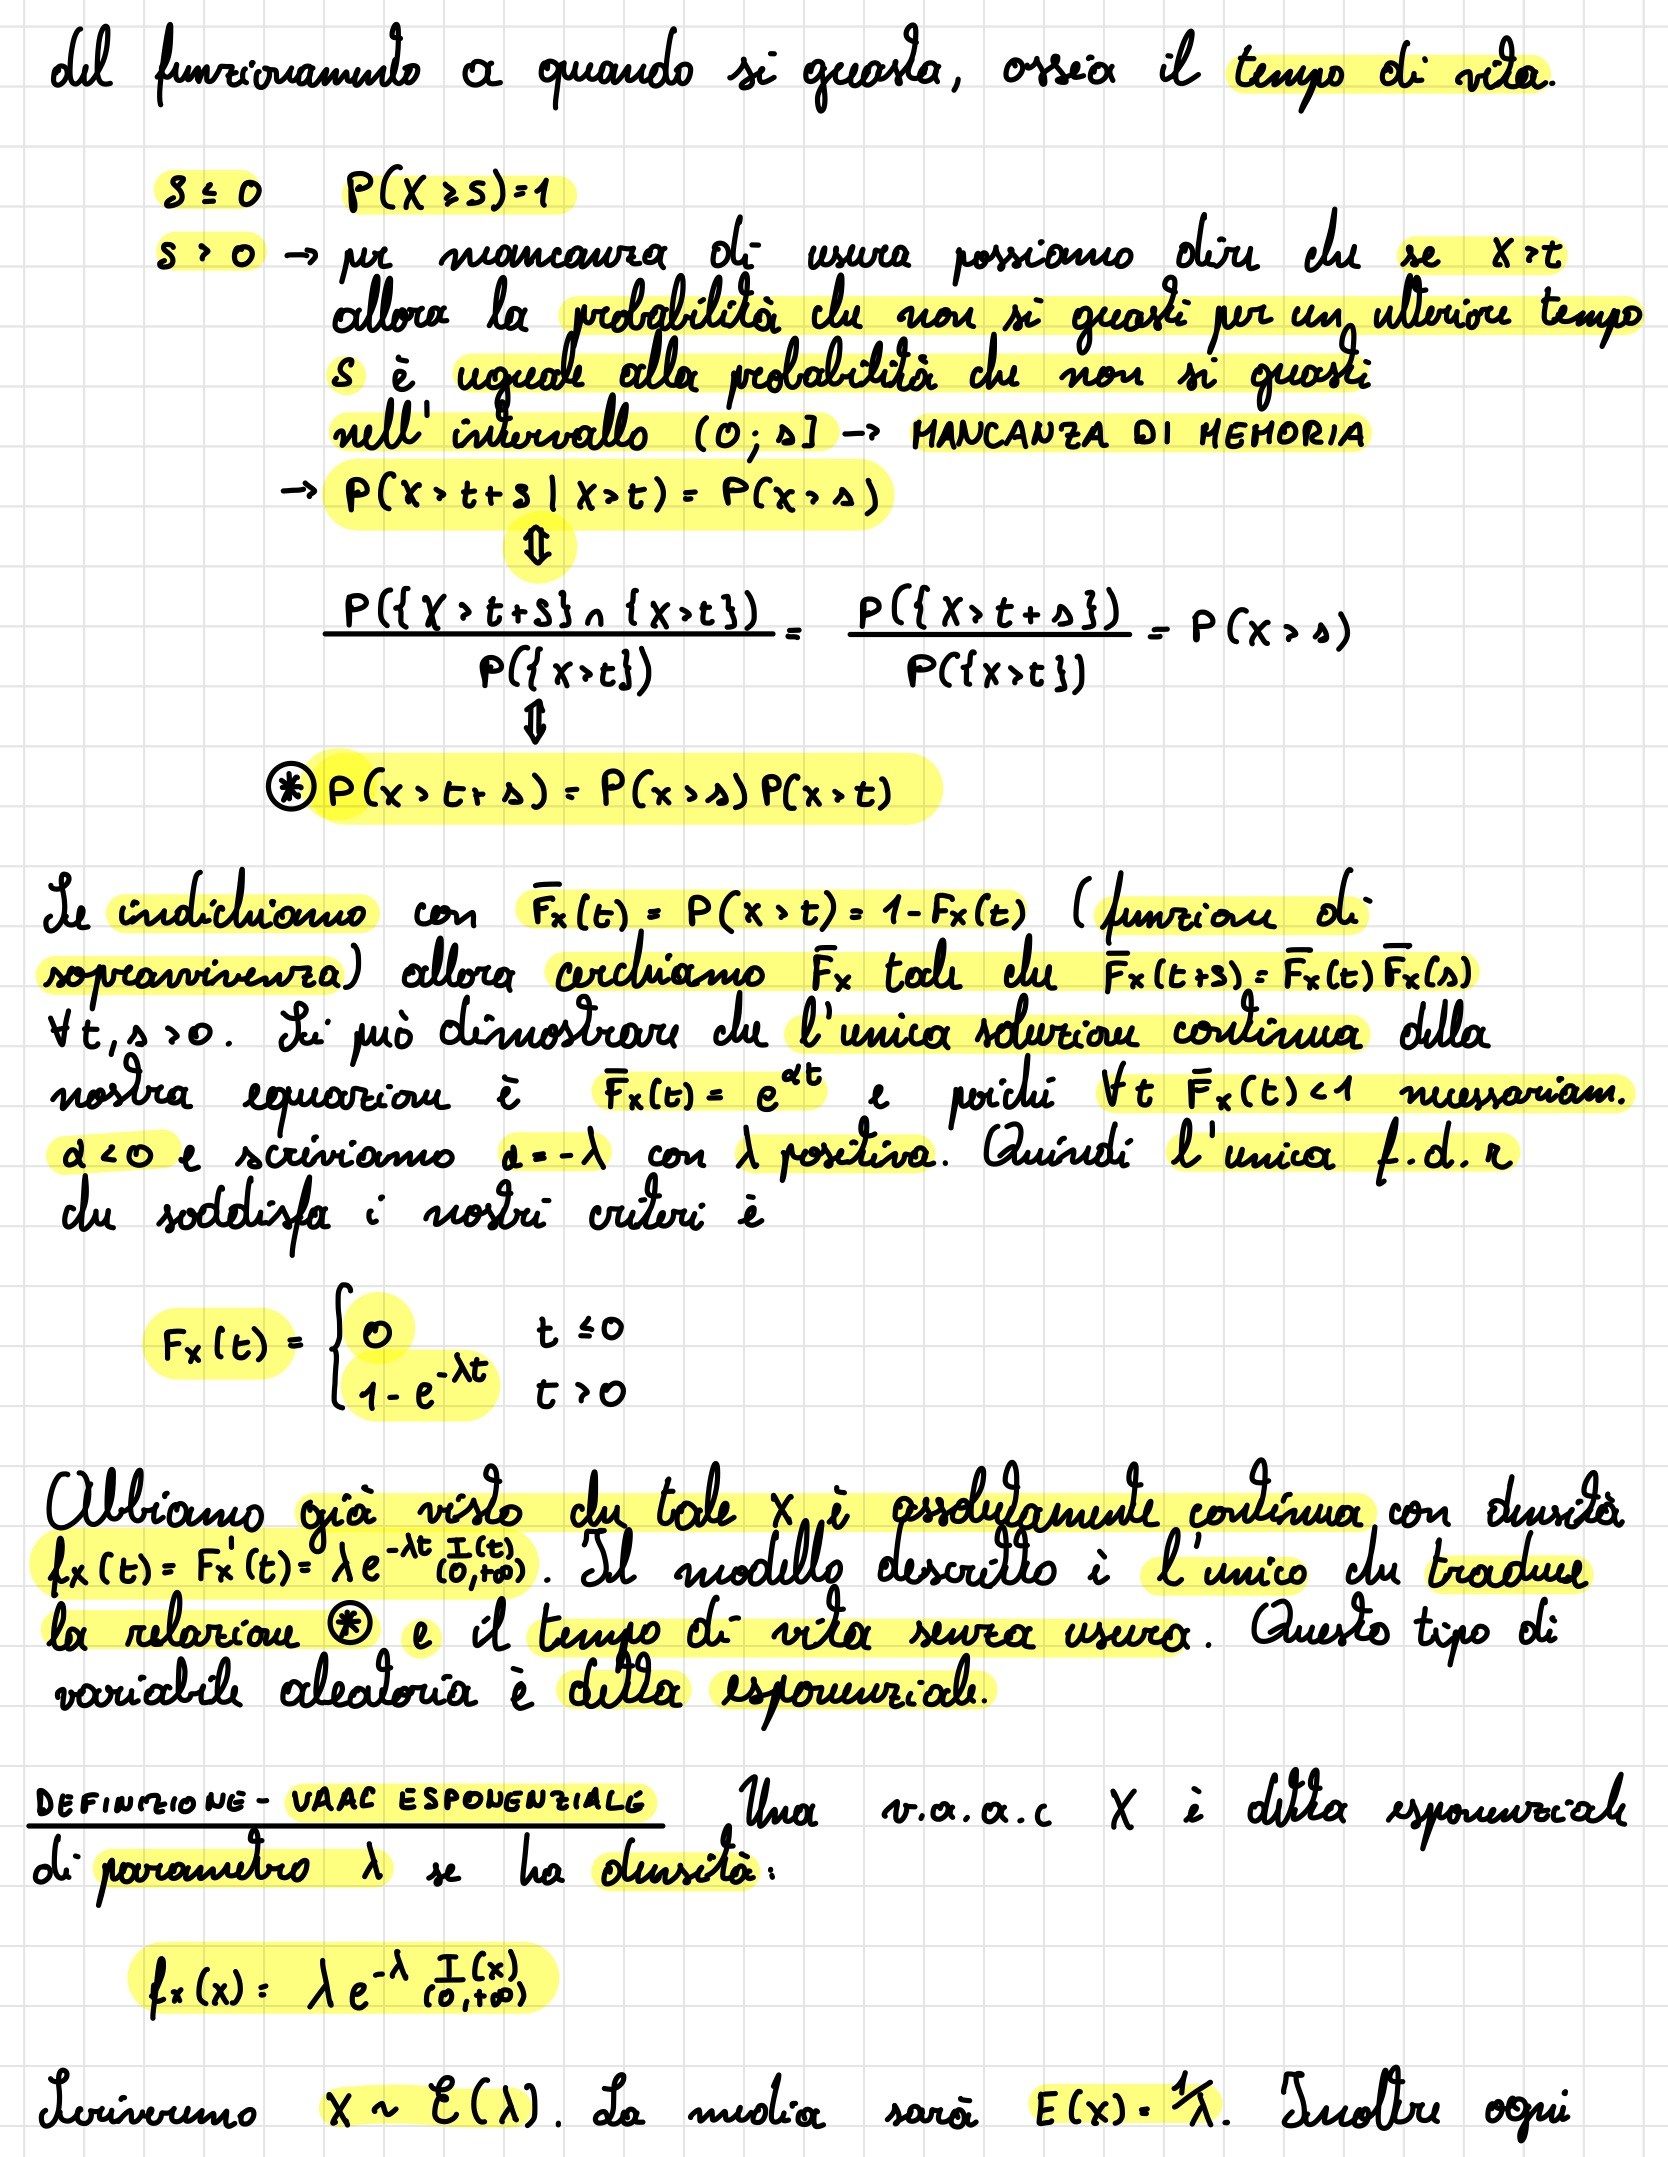 del funzionamento a quando si guasta, ossia il tempo di vita.
S ≤ 0 P(X ≥ S) = 1
S > 0 → per mancanza di usura possiamo dire che se X > t
allora la probabilità che non si guasti per un ulteriore tempo
S è uguale alla probabilità che non si guasti
nell'intervallo (0; s] → MANCANZA DI MEMORIA
→ P(X > t+S | X > t) = P(X > s)
⇕
P({X > t+S} ∩ {X > t}) / P({X > t}) = P({X > t+s}) / P({X > t}) = P(X > s)
⇕
⊛ P(X > t+s) = P(X > s) P(X > t)
Se indichiamo con F̅x(t) = P(X > t) = 1 - Fx(t) (funzione di
sopravvivenza) allora cerchiamo F̅x tale che F̅x(t+s) = F̅x(t) F̅x(s)
∀ t, s > 0. Si può dimostrare che l'unica soluzione continua della
nostra equazione è F̅x(t) = e^αt e poiché ∀ t F̅x(t) < 1 necessariam.
α < 0 e scriviamo α = -λ con λ positiva. Quindi l'unica f.d.r
che soddisfa i nostri criteri è
Fx(t) = { 0 t ≤ 0
1 - e^-λt t > 0
Abbiamo già visto che tale X è assolutamente continua con densità
fx(t) = Fx'(t) = λe^-λt I(t) (0,+∞). Il modello descritto è l'unico che traduce
la relazione ⊛ e il tempo di vita senza usura. Questo tipo di
variabile aleatoria è detta esponenziale.
DEFINIZIONE - VAAC ESPONENZIALE Una v.a.a.c X è detta esponenziale
di parametro λ se ha densità:
fx(x) = λe^-λ I(x) (0,+∞)
Scriveremo X ~ Ɛ(λ). La media sarà E(X) = 1/λ. Inoltre ogni